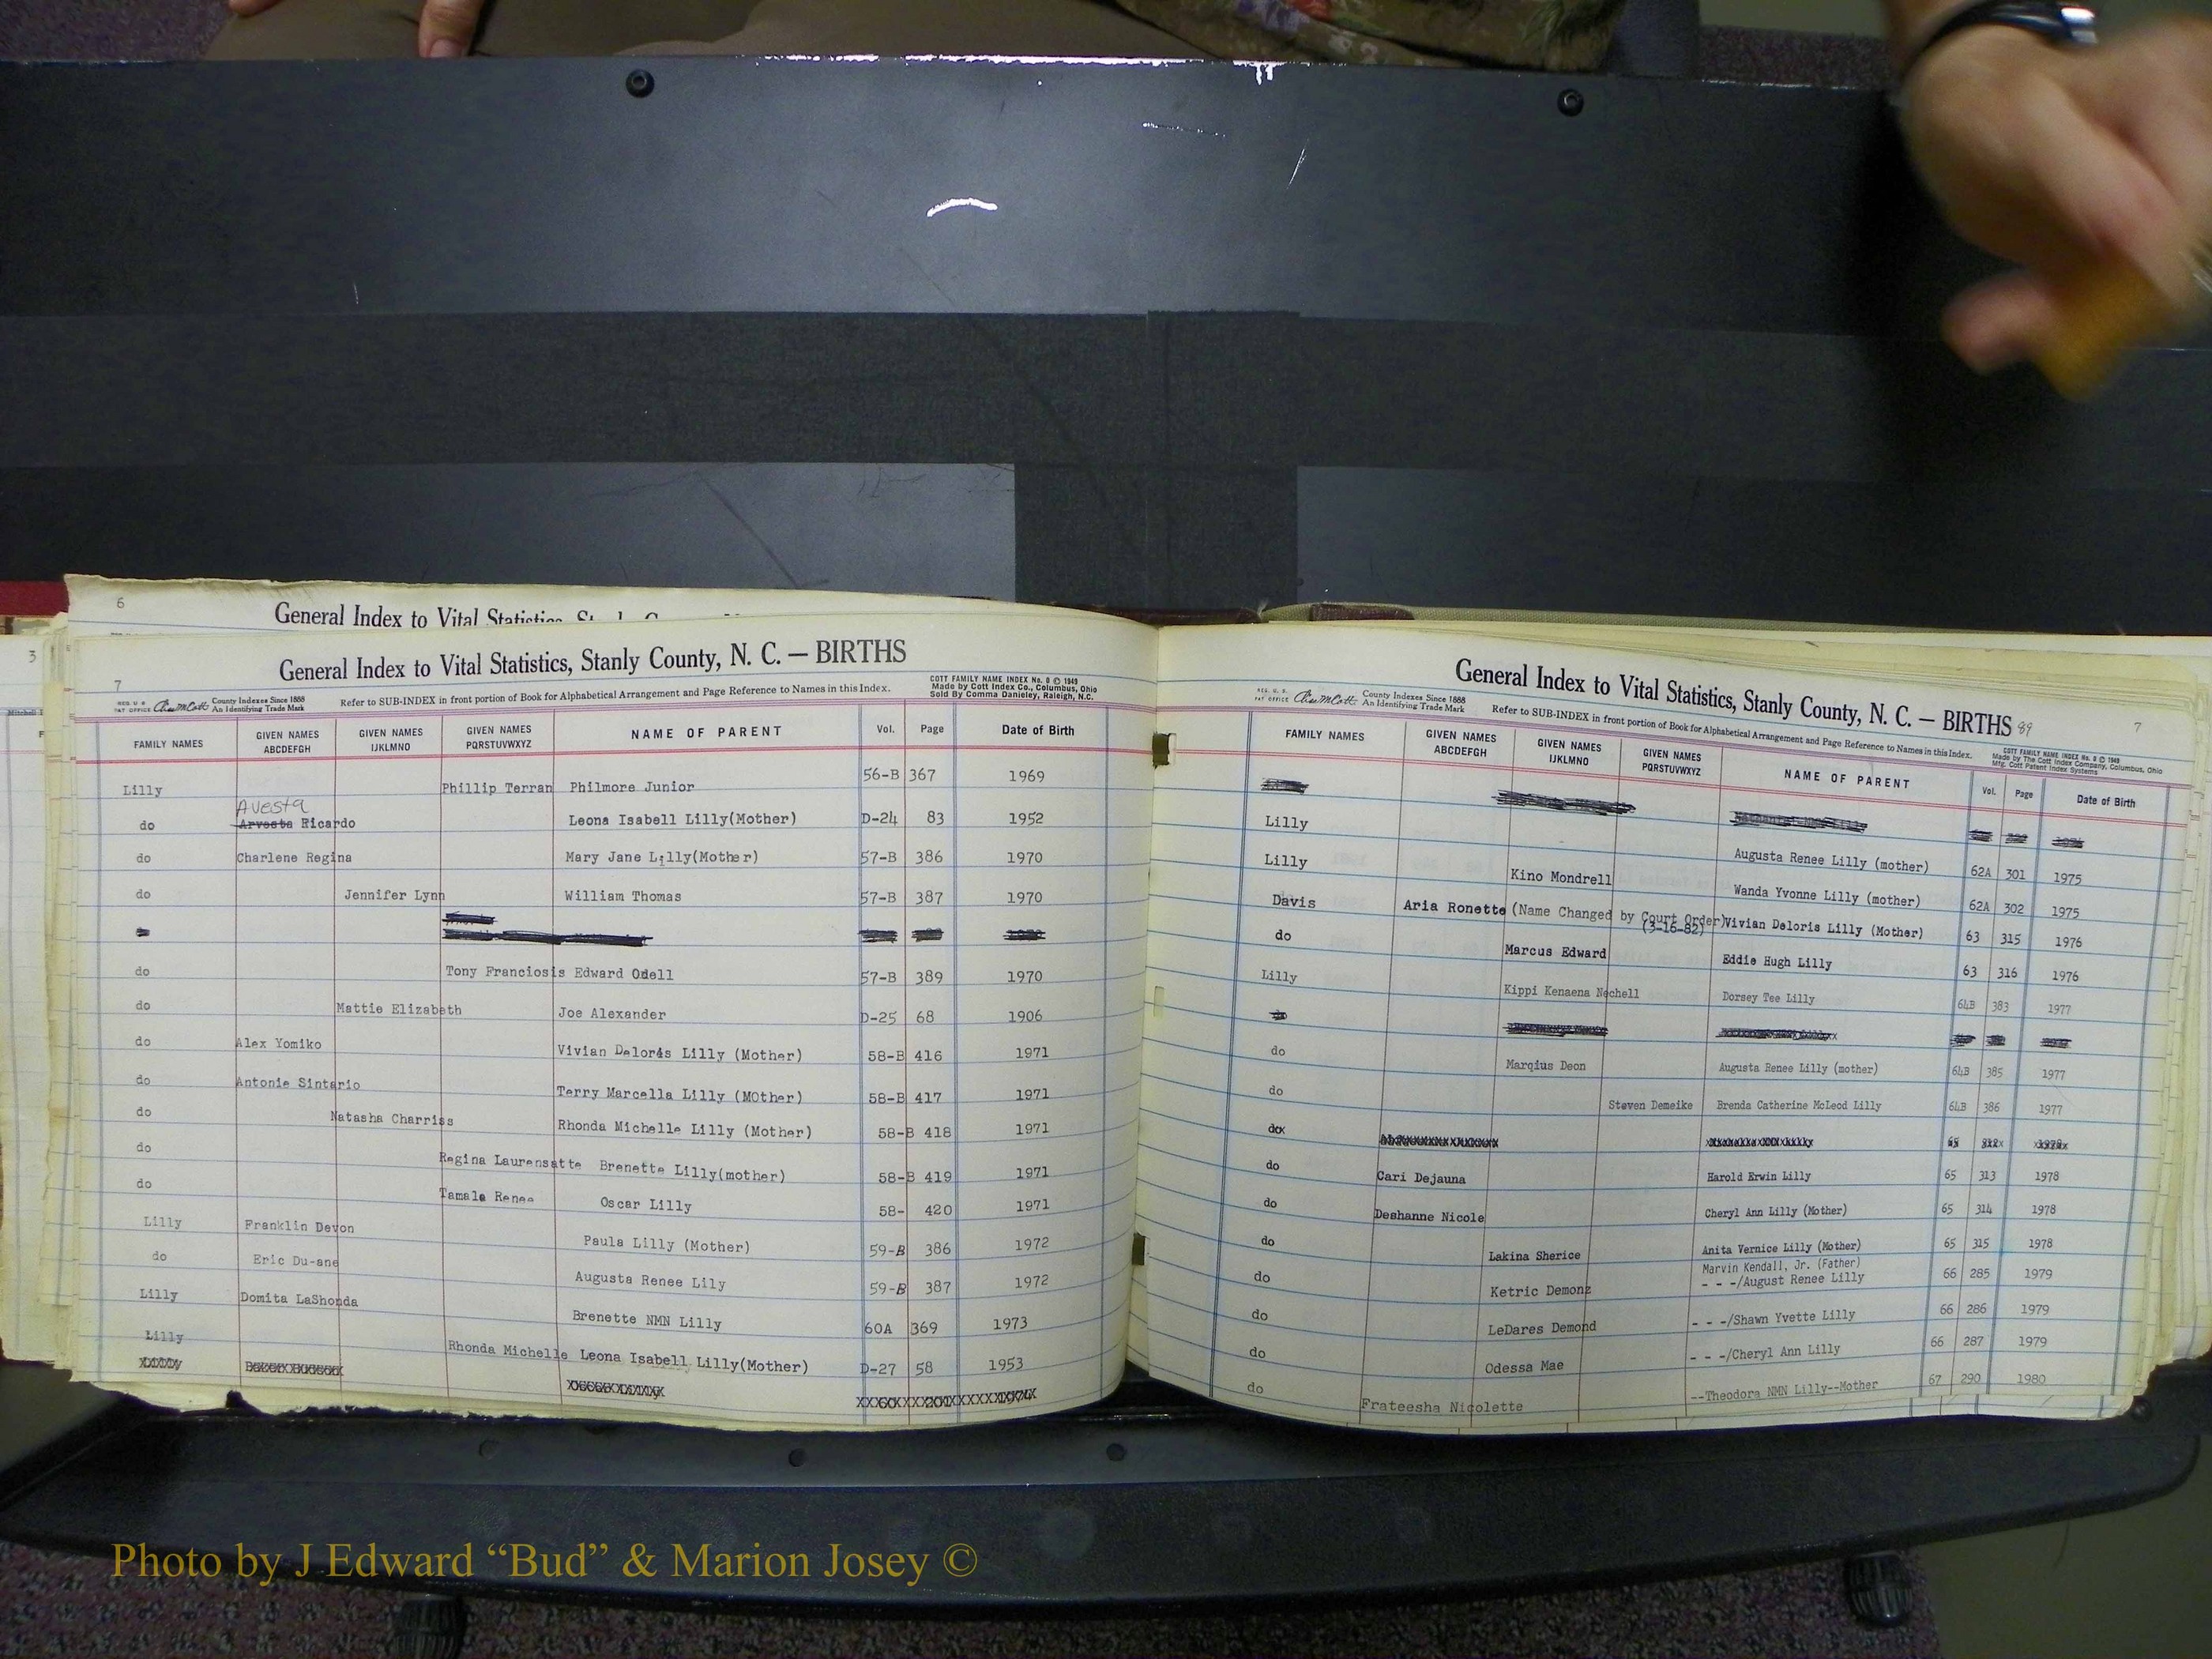 6
General Index to Vital Statistics,
3
General Index to Vital Statistics, Stanly County, N. C. — BIRTHS
7
REG. U S PAT OFFICE County Indexes Since 1888 An Identifying Trade Mark Refer to SUB-INDEX in front portion of Book for Alphabetical Arrangement and Page Reference to Names in this Index. COTT FAMILY NAME INDEX No. 8 © 1949 Made by Cott Index Co., Columbus, Ohio Sold By Comma Danieley, Raleigh, N.C.
FAMILY NAMES GIVEN NAMES ABCDEFGH GIVEN NAMES IJKLMNO GIVEN NAMES PQRSTUVWXYZ NAME OF PARENT Vol. Page Date of Birth
Lilly Phillip Terran Philmore Junior 56-B 367 1969
Avesta
do Arvesta Ricardo Leona Isabell Lilly(Mother) D-24 83 1952
do Charlene Regina Mary Jane Lilly(Mother) 57-B 386 1970
do Jennifer Lynn William Thomas 57-B 387 1970
do Tony Franciosis Edward Odell 57-B 389 1970
do Mattie Elizabeth Joe Alexander D-25 68 1906
do Alex Yomiko Vivian Deloris Lilly (Mother) 58-B 416 1971
do Antonie Sintario Terry Marcella Lilly (MOther) 58-B 417 1971
do Natasha Charriss Rhonda Michelle Lilly (Mother) 58-B 418 1971
do Regina Laurensatte Brenette Lilly(mother) 58-B 419 1971
do Tamala Renee Oscar Lilly 58- 420 1971
Lilly Franklin Devon Paula Lilly (Mother) 59-B 386 1972
do Eric Du-ane Augusta Renee Lily 59-B 387 1972
Lilly Domita LaShonda Brenette NMN Lilly 60A 369 1973
Lilly Rhonda Michelle Leona Isabell Lilly(Mother) D-27 58 1953
General Index to Vital Statistics, Stanly County, N. C. — BIRTHS 89
7
REG. U. S. PAT OFFICE County Indexes Since 1888 An Identifying Trade Mark Refer to SUB-INDEX in front portion of Book for Alphabetical Arrangement and Page Reference to Names in this Index. COTT FAMILY NAME INDEX No. 8 © 1949 Made by The Cott Index Company, Columbus, Ohio Mfg. Cott Patent Index Systems
FAMILY NAMES GIVEN NAMES ABCDEFGH GIVEN NAMES IJKLMNO GIVEN NAMES PQRSTUVWXYZ NAME OF PARENT Vol. Page Date of Birth
Lilly Augusta Renee Lilly (mother) 62A 301 1975
Lilly Kino Mondrell Wanda Yvonne Lilly (mother) 62A 302 1975
Davis Aria Ronette (Name Changed by Court Order) (3-16-82) Vivian Deloris Lilly (Mother) 63 315 1976
do Marcus Edward Eddie Hugh Lilly 63 316 1976
Lilly Kippi Kenaena Nechell Dorsey Tee Lilly 64B 383 1977
do Marqius Deon Augusta Renee Lilly (mother) 64B 385 1977
do Steven Demeike Brenda Catherine McLeod Lilly 64B 386 1977
do Cari Dejauna Harold Erwin Lilly 65 313 1978
do Deshanne Nicole Cheryl Ann Lilly (Mother) 65 314 1978
do Lakina Sherice Anita Vernice Lilly (Mother) 65 315 1978
Marvin Kendall, Jr. (Father)
do Ketric Demonz - - -/August Renee Lilly 66 285 1979
do LeDares Demond - - -/Shawn Yvette Lilly 66 286 1979
do Odessa Mae - - -/Cheryl Ann Lilly 66 287 1979
do Frateesha Nicolette --Theodora NMN Lilly--Mother 67 290 1980
Photo by J Edward “Bud” & Marion Josey ©